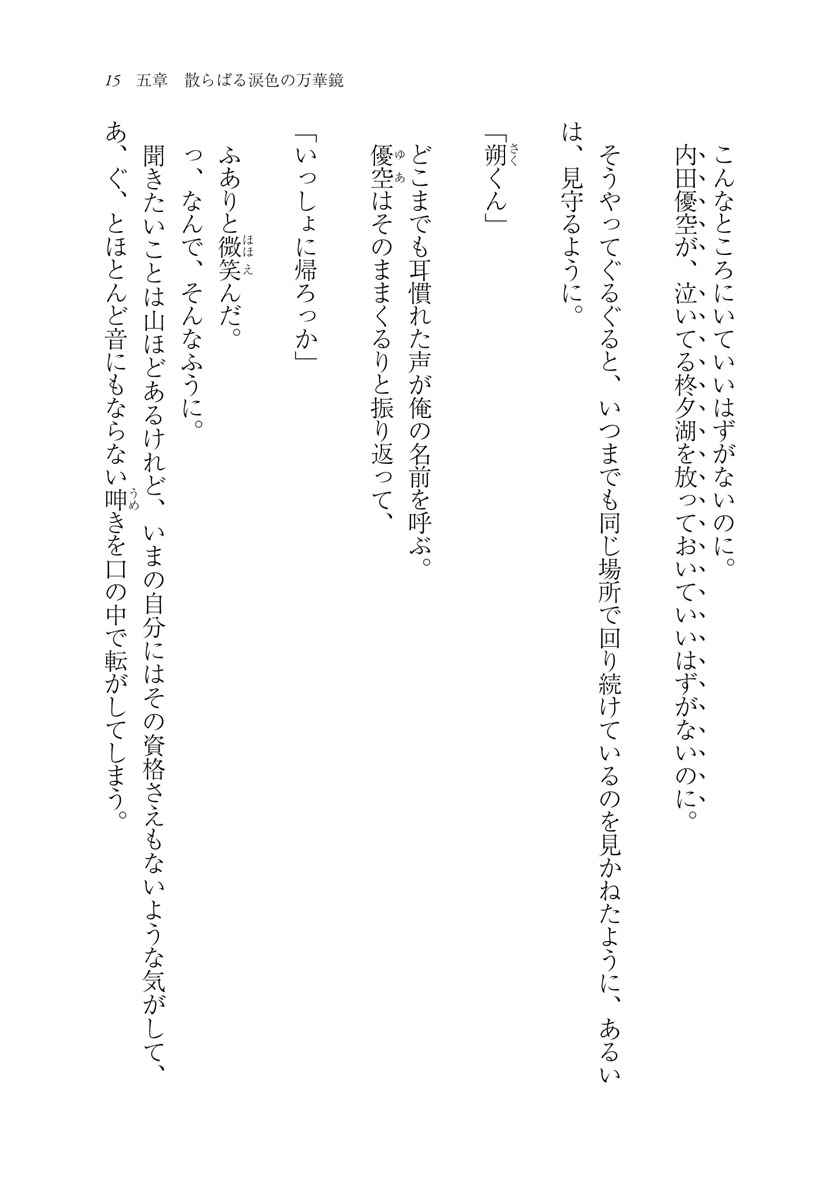 15 五章 散らばる涙色の万華鏡
こんなところにいていいはずがないのに。
内田優空が、泣いてる柊夕湖を放っておいていいはずがないのに。
そうやってぐるぐると、いつまでも同じ場所で回り続けているのを見かねたように、あるい
は、見守るように。
「朔くん」
どこまでも耳慣れた声が俺の名前を呼ぶ。
優空はそのままくるりと振り返って、
「いっしょに帰ろっか」
ふありと微笑んだ。
っ、なんで、そんなふうに。
聞きたいことは山ほどあるけれど、いまの自分にはその資格さえもないような気がして、
あ、ぐ、とほとんど音にもならない呻きを口の中で転がしてしまう。